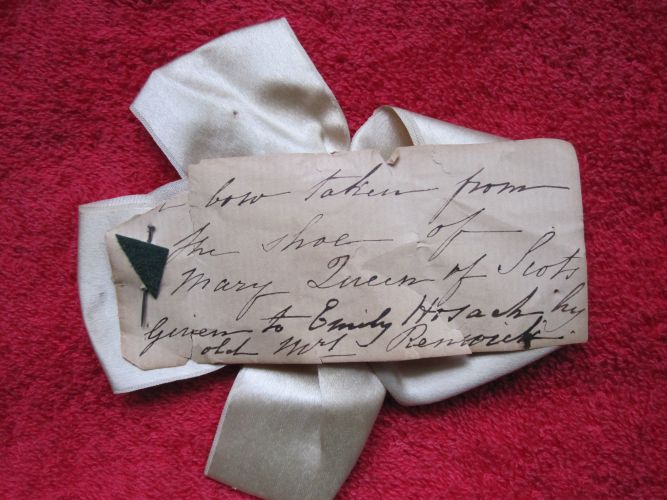 a bow taken from
the shoe of
Mary Queen of Scots
Given to Emily Hosack by
old Mrs Renwick.